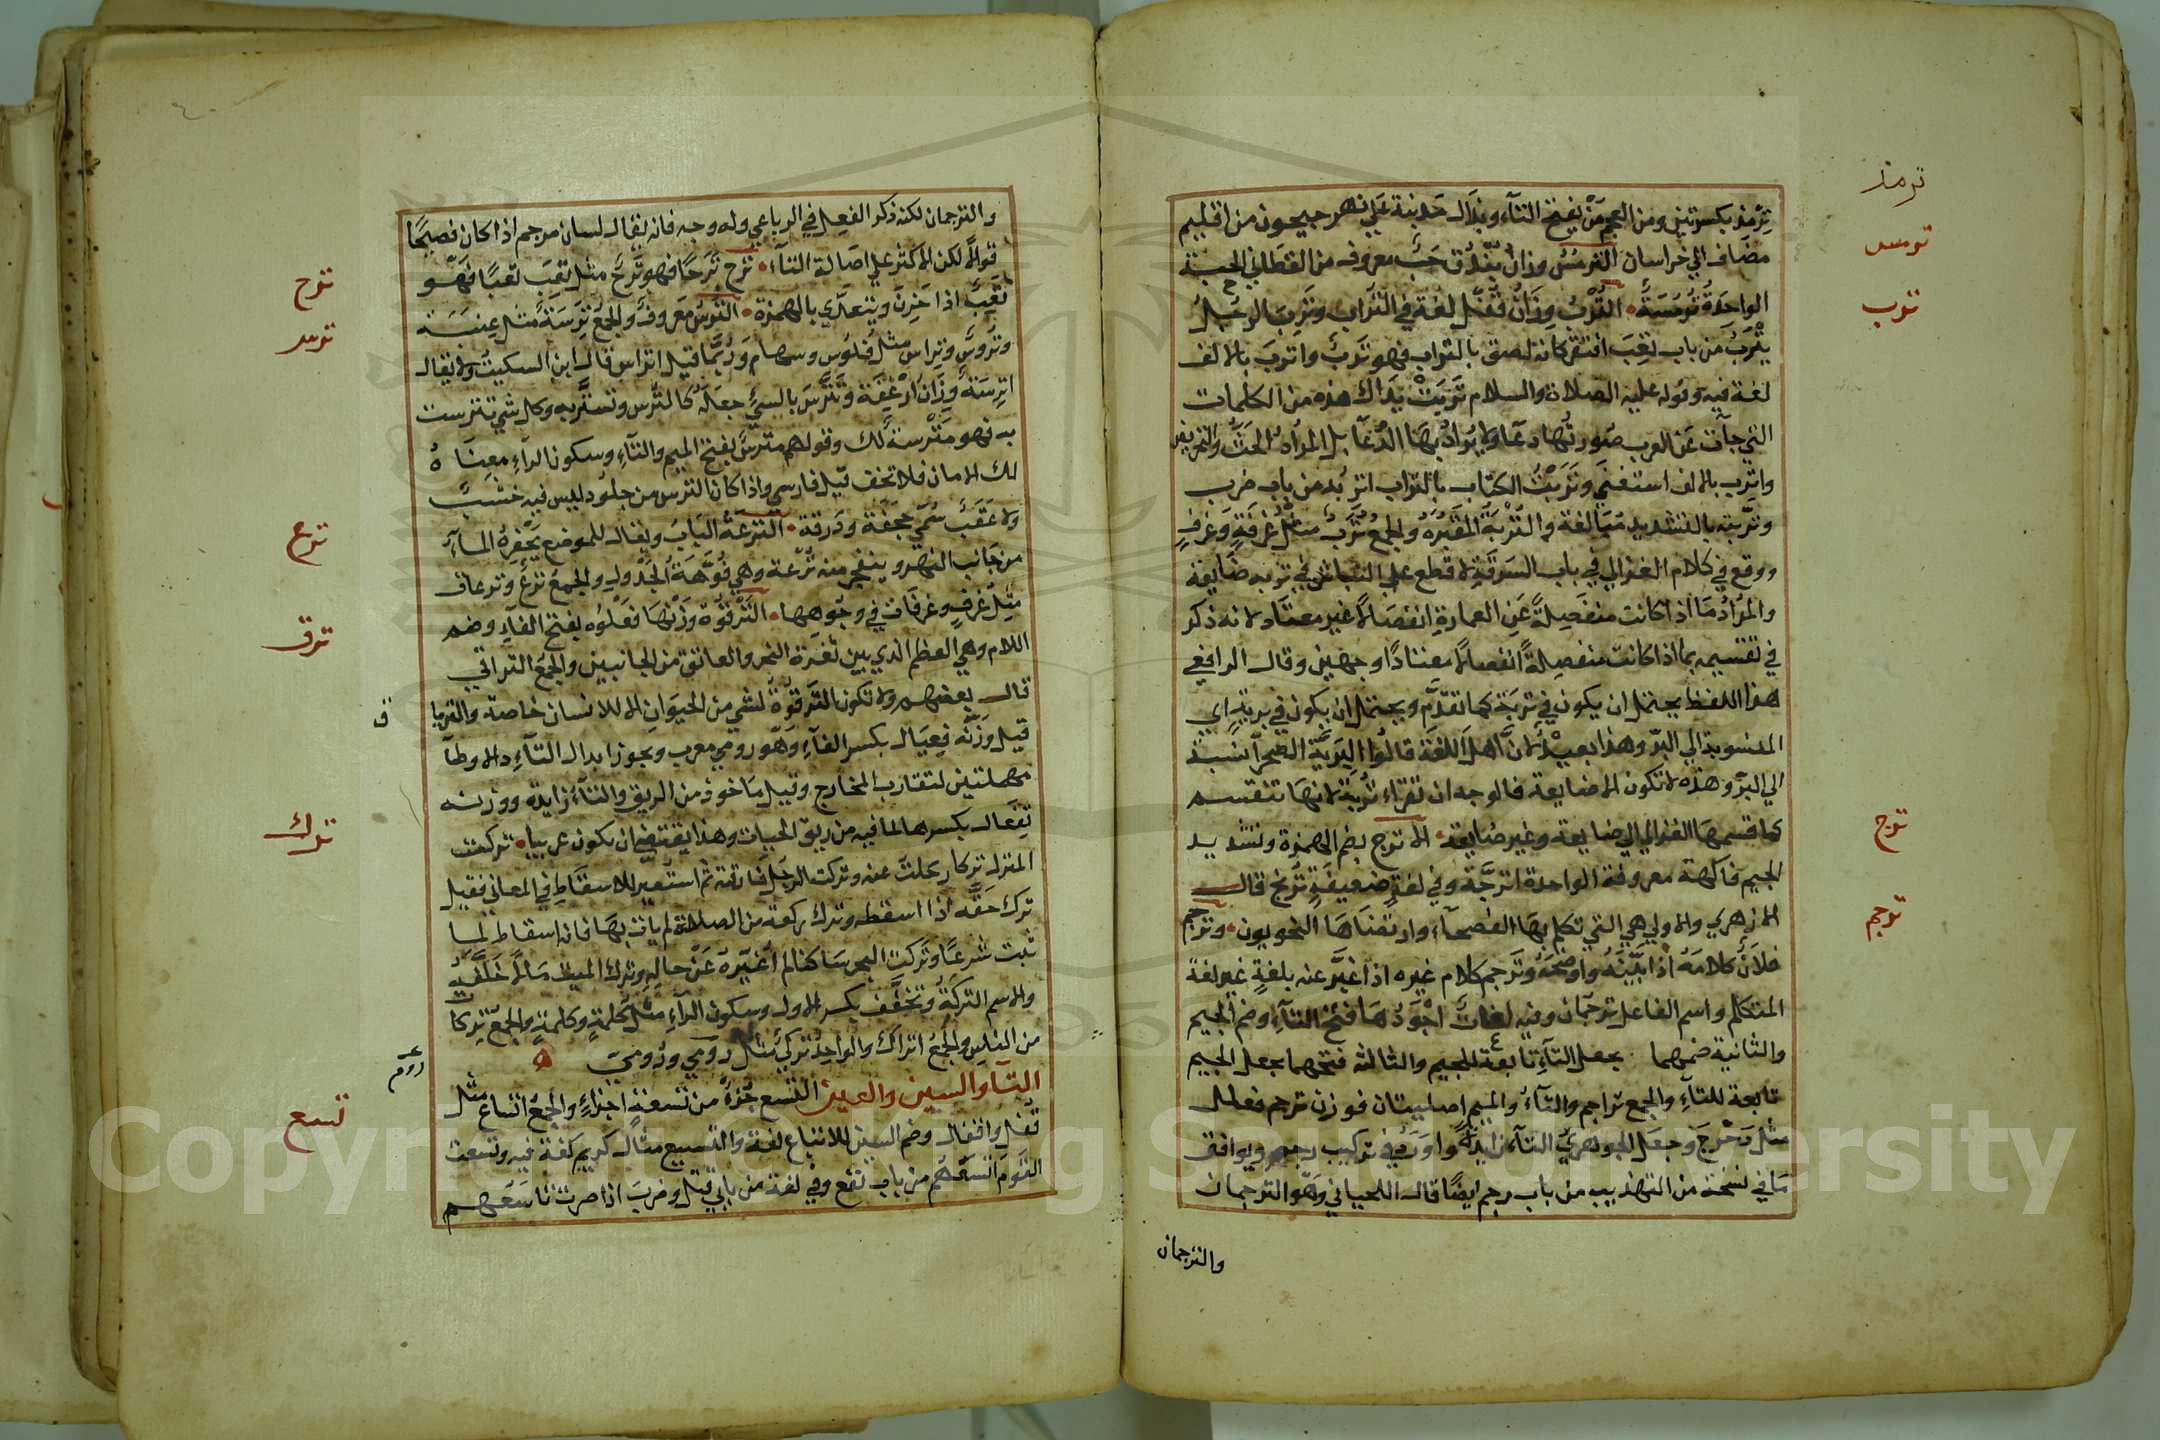 ترمذ
ترمس
ترب
ترج
ترجم
ترمذ بكسرتين ومن العجم من يفتح التاء وبذال مدينة علي نهر جيحون من اقليم
مضاف الي خراسان الترمس وزان بندق حب معروف من القطاني الحبة
الواحدة ترمسة الترب وزان قفل لغة في التراب وترب الرجل
يترب من باب تعب افتقر كانه لصق بالتراب فهو ترب واترب بالالف
لغة فيه وقوله عليه الصلاة والسلام تربت يداك هذه من الكلمات
التي جآت عن العرب صورتها دعا ولا يراد بها الدعا بل المراد الحث والتحريض
واترب بالالف استغني وتربت الكتاب بالتراب اتربه من باب ضرب
وتربته بالتشديد مبالغة والتربة المقبرة والجمع ترب مثل غرفة وغرف
ووقع في كلام الغزالي في باب السرقة لا قطع علي النباش في تربه ضايعة
والمراد ما اذا كانت منفصلة عن العمارة انفصالا غير معتاد لانه ذكر
في تقسيمه بما اذا كانت منفصلة انفصالا معتادا وجهين وقال الرافعي
هذا اللفظ يحتمل ان يكون في تربة كما تقدم ويحتمل ان يكون في برية اي
المنسوبة الي البر وهذا بعيد لان اهل اللغة قالوا البرية الصحرا نسبة
الي البر وهذه لا تكون الا ضايعة فالوجه ان تقراء تربة لانها تنقسم
كما قسمها الغزالي الي ضايعة وغير ضايعة الاترج بضم الهمزة وتشديد
الجيم فاكهة معروفة الواحدة اترجة وفي لغة ضعيفة ترنج قال
الازهري والاولي هي التي تكلم بها الفصحاء وارتضاها النحويون وترجم
فلان كلامه اذا بينه واوضحه وترجم كلام غيره اذا عبر عنه بلغة غير لغة
المتكلم واسم الفاعل ترجمان وفيه لغات اجودها فتح التاء وضم الجيم
والثانية ضمهما بجعل التاء تابعة للجيم والثالثة فتحهما بجعل الجيم
تابعة للتاء والجمع تراجم والتاء والميم اصليتان فوزن ترجم فعلل
مثل دحرج وجعل الجوهري التاء زايدة واورده في تركيب رجم ويوافقه
ما في نسخة من التهذيب من باب رجم ايضا قال اللحياني وهو الترجمان
والترجمان
ترح
ترس
ترع
ترق
ترك
تسع
والترجمان لكنه ذكر الفعل في الرباعي وله وجه فانه يقال لسان مرجم اذا كان فصيحا
قوالا لكن الاكثر علي اصالة التاء ترح ترحا فهو ترح مثل تعب تعبا فهو
تعب اذا حزن ويتعدي بالهمزة الترس معروف والجمع ترسة مثل عنبة
وتروس وتراس مثل فلوس وسهام وربما قيل اتراس قال ابن السكيت ولا يقال
اترسة وزان ارغفة وتترس بالشيء جعله كالترس وتستر به وكل شي تترست
به فهو مترسة لك وقولهم مترس بفتح الميم والتاء وسكون الراء معناه
لك الامان فلا تخف قيل فارسي واذا كان الترس من جلود ليس فيه خشب
ولا عقب سمي حجفة ودرقة الترعة الباب ويقال للموضع يحفره الماء
من جانب النهر ويتفجر منه ترعة وهي فوهة الجدول والجمع ترع وترعات
مثل غرف وغرفات في وجوهها الترقوة وزنها فعلوه بفتح الفاء وضم
اللام وهي العظم الذي بين ثغرة النحر والعاتق من الجانبين والجمع التراقي
قال بعضهم ولا تكون الترقوة لشي من الحيوان الا للانسان خاصة والترياق
قيل وزنه فعيال بكسر الفاء وهو رومي معرب ويجوز ابدال التاء دالا وطآ
مهملتين لتقارب المخارج وقيل ماخوذ من الريق والتاء زايدة ووزنه
تفعال بكسرها لما فيه من ريق الحيات وهذا يقتضي ان يكون عربيا تركت
المنزل تركا رحلت عنه وتركت الرجل فارقته ثم استعير للاسقاط في المعاني فقيل
ترك حقه اذا اسقطه وترك ركعة من الصلاة لم يات بها فانه اسقاط لما
ثبت شرعا وتركت البحر ساكنا لم اغيره عن حاله وترك الميت مالا خلفه
والاسم التركة وتخفف بكسر الاول وسكون الراء مثل كلمة وكلمة والجمع تركات
من الناس والجمع اتراك والواحد تركي مثال رومي ورومي
التا والسين والعين التسع جزء من تسعة اجزاء والجمع اتساع مثل
قفل واقفال وضم السين للاتباع لغة والتسيع مثال كريم لغة فيه وتسعت
القوم اتسعهم من باب نفع وفي لغة من بابي قتل وضرب اذا صرت تاسعهم